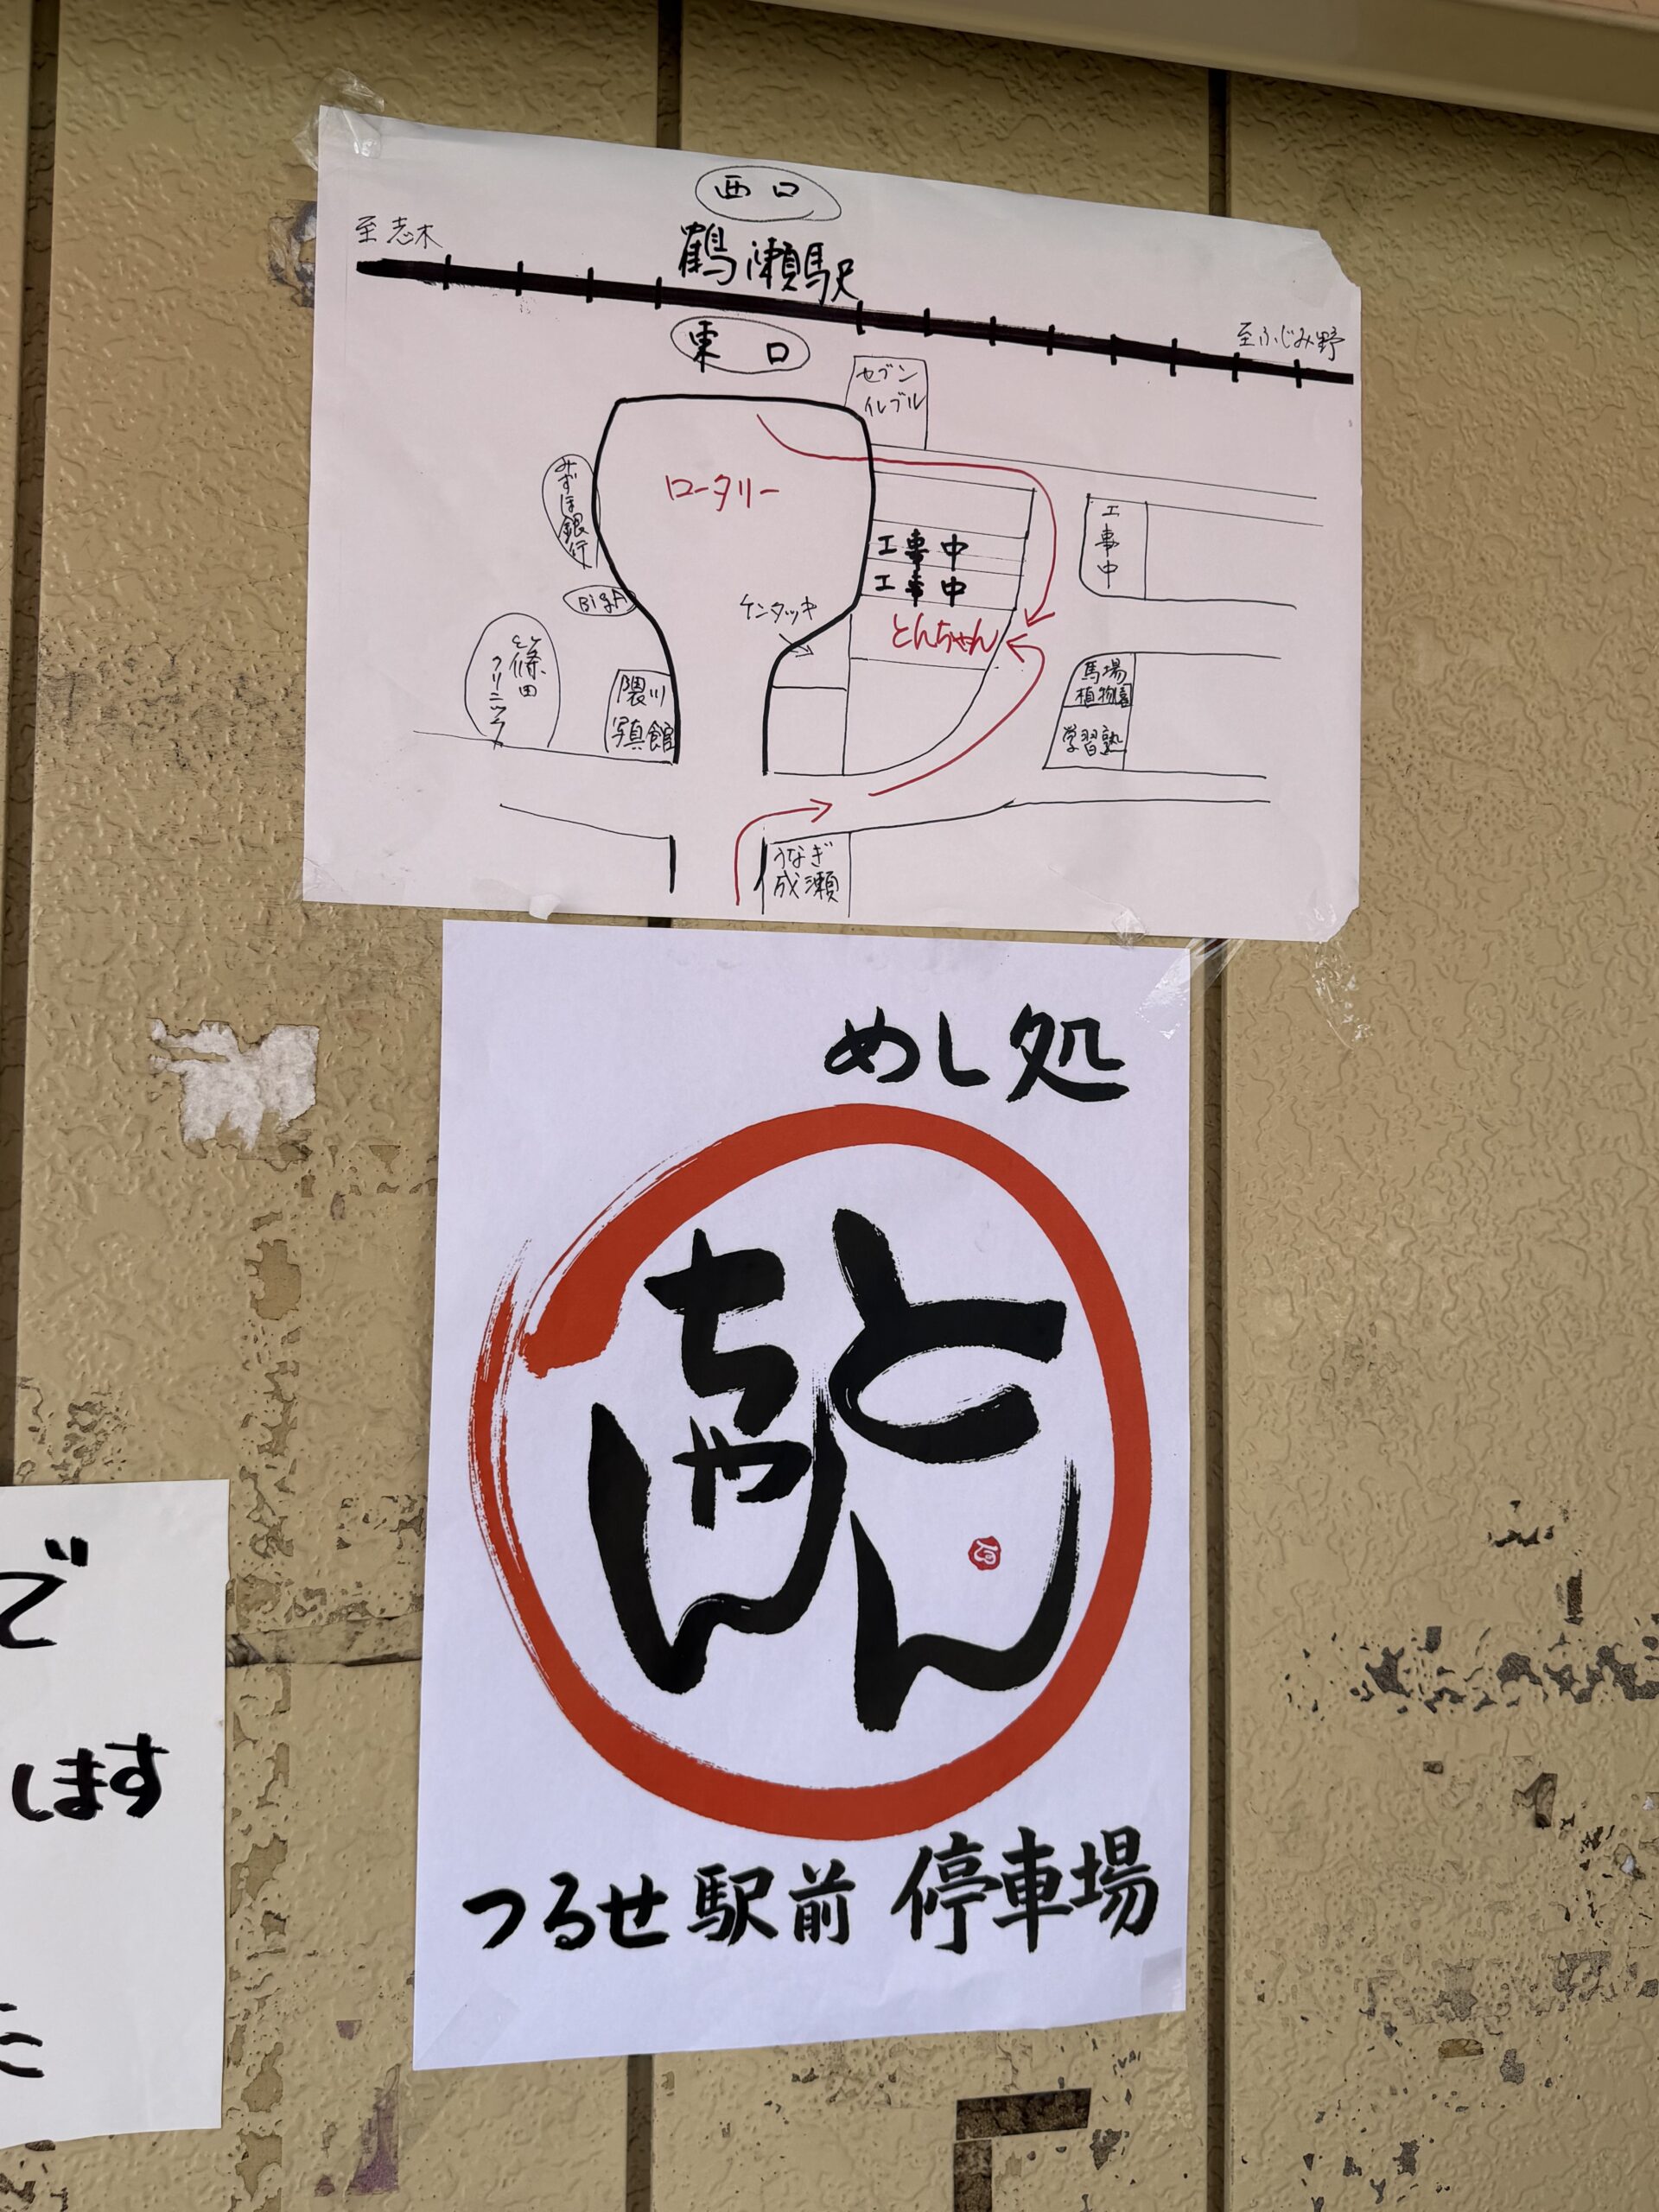 西口
至志木
鶴瀬駅
至ふじみ野
東口
セブン
イレブン
みずほ銀行
ロータリー
工事中
工事中
工事中
BigA
ケンタッキ
とんちゃん
篠田
クリニック
隈川
写真館
馬場
植物園
学習塾
うなぎ
成瀬
めし処
とん
ちゃん
つるせ駅前 停車場
で
します